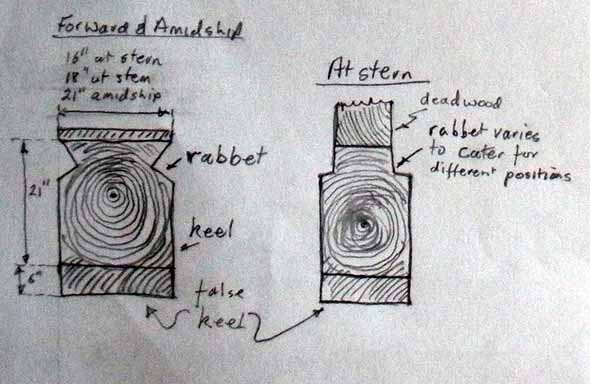 Forward & Amidship
16" at stern
18" at stem
21" amidship
rabbet
21"
keel
6"
false
keel
At stern
deadwood
rabbet varies
to cater for
different positions